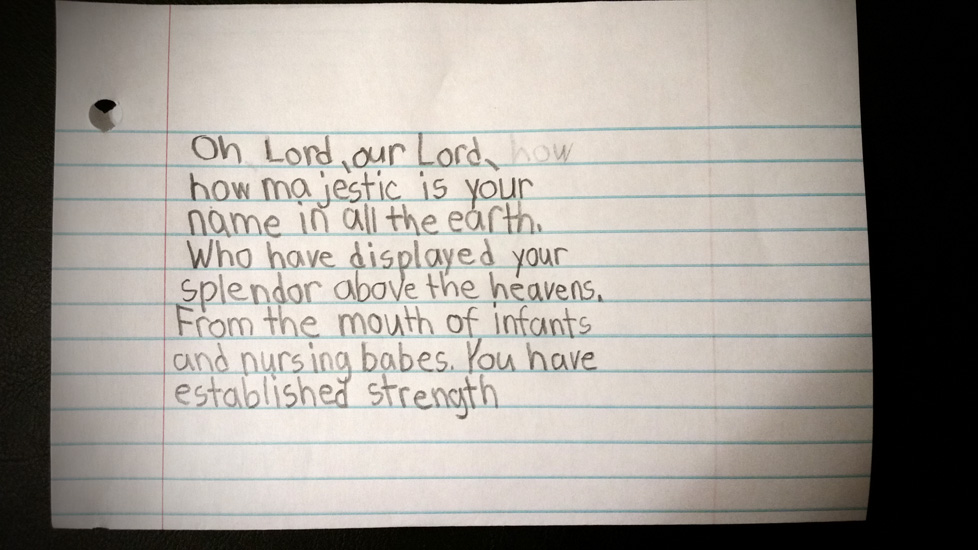 Oh Lord, our Lord, how
how majestic is your
name in all the earth.
Who have displayed your
splendor above the heavens.
From the mouth of infants
and nursing babes. You have
established strength